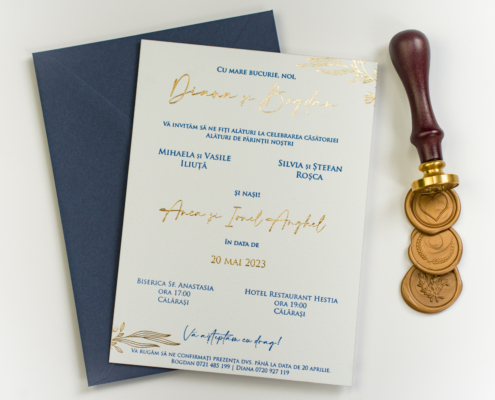 Cu mare bucurie, noi,
Diana și Bogdan
Vă invităm să ne fiți alături la celebrarea căsătoriei
Alături de părinții noștri
Mihaela și Vasile
Iliuță
Silvia și Ștefan
Roșca
și nașii
Anca și Ionel Anghel
în data de
20 mai 2023
Biserica Sf. Anastasia
ora 17:00
Călărași
Hotel Restaurant Hestia
ora 19:00
Călărași
Vă așteptăm cu drag!
Vă rugăm să ne confirmați prezența dvs. până la data de 20 aprilie.
Bogdan 0721 485 199 | Diana 0720 927 119